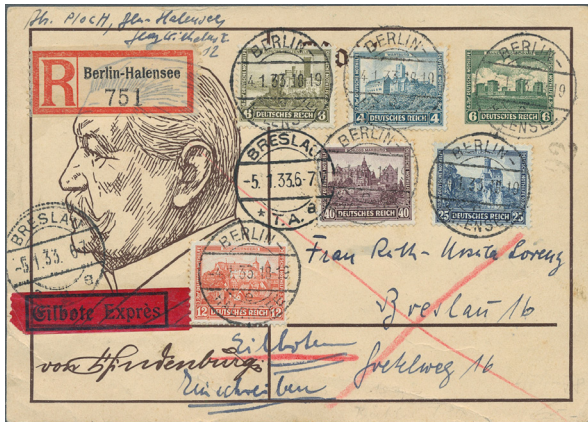 Abs. Ploch, Bln-Halensee
12
R
Berlin-Halensee
751
BERLIN-
4.1.33.18-19
BERLIN-
4.1.33.18-19
BERLIN-
HALENSEE
6 DEUTSCHES REICH 6
4 DEUTSCHES REICH 4
6 DEUTSCHES REICH 6
BRESLAU
-5.1.33.6-7
* T.A. a
BERLIN-
BERLIN-
40 DEUTSCHES REICH 40
25 DEUTSCHES REICH 25
BRESLAU
-5.1.33. 6-7
a
BERLIN-
12 DEUTSCHES REICH 12
Frau Ruth-Ursula Lorenz
Eilbote Exprès
Breslau 16
Eilboten
von Hindenburg
16
Einschreiben